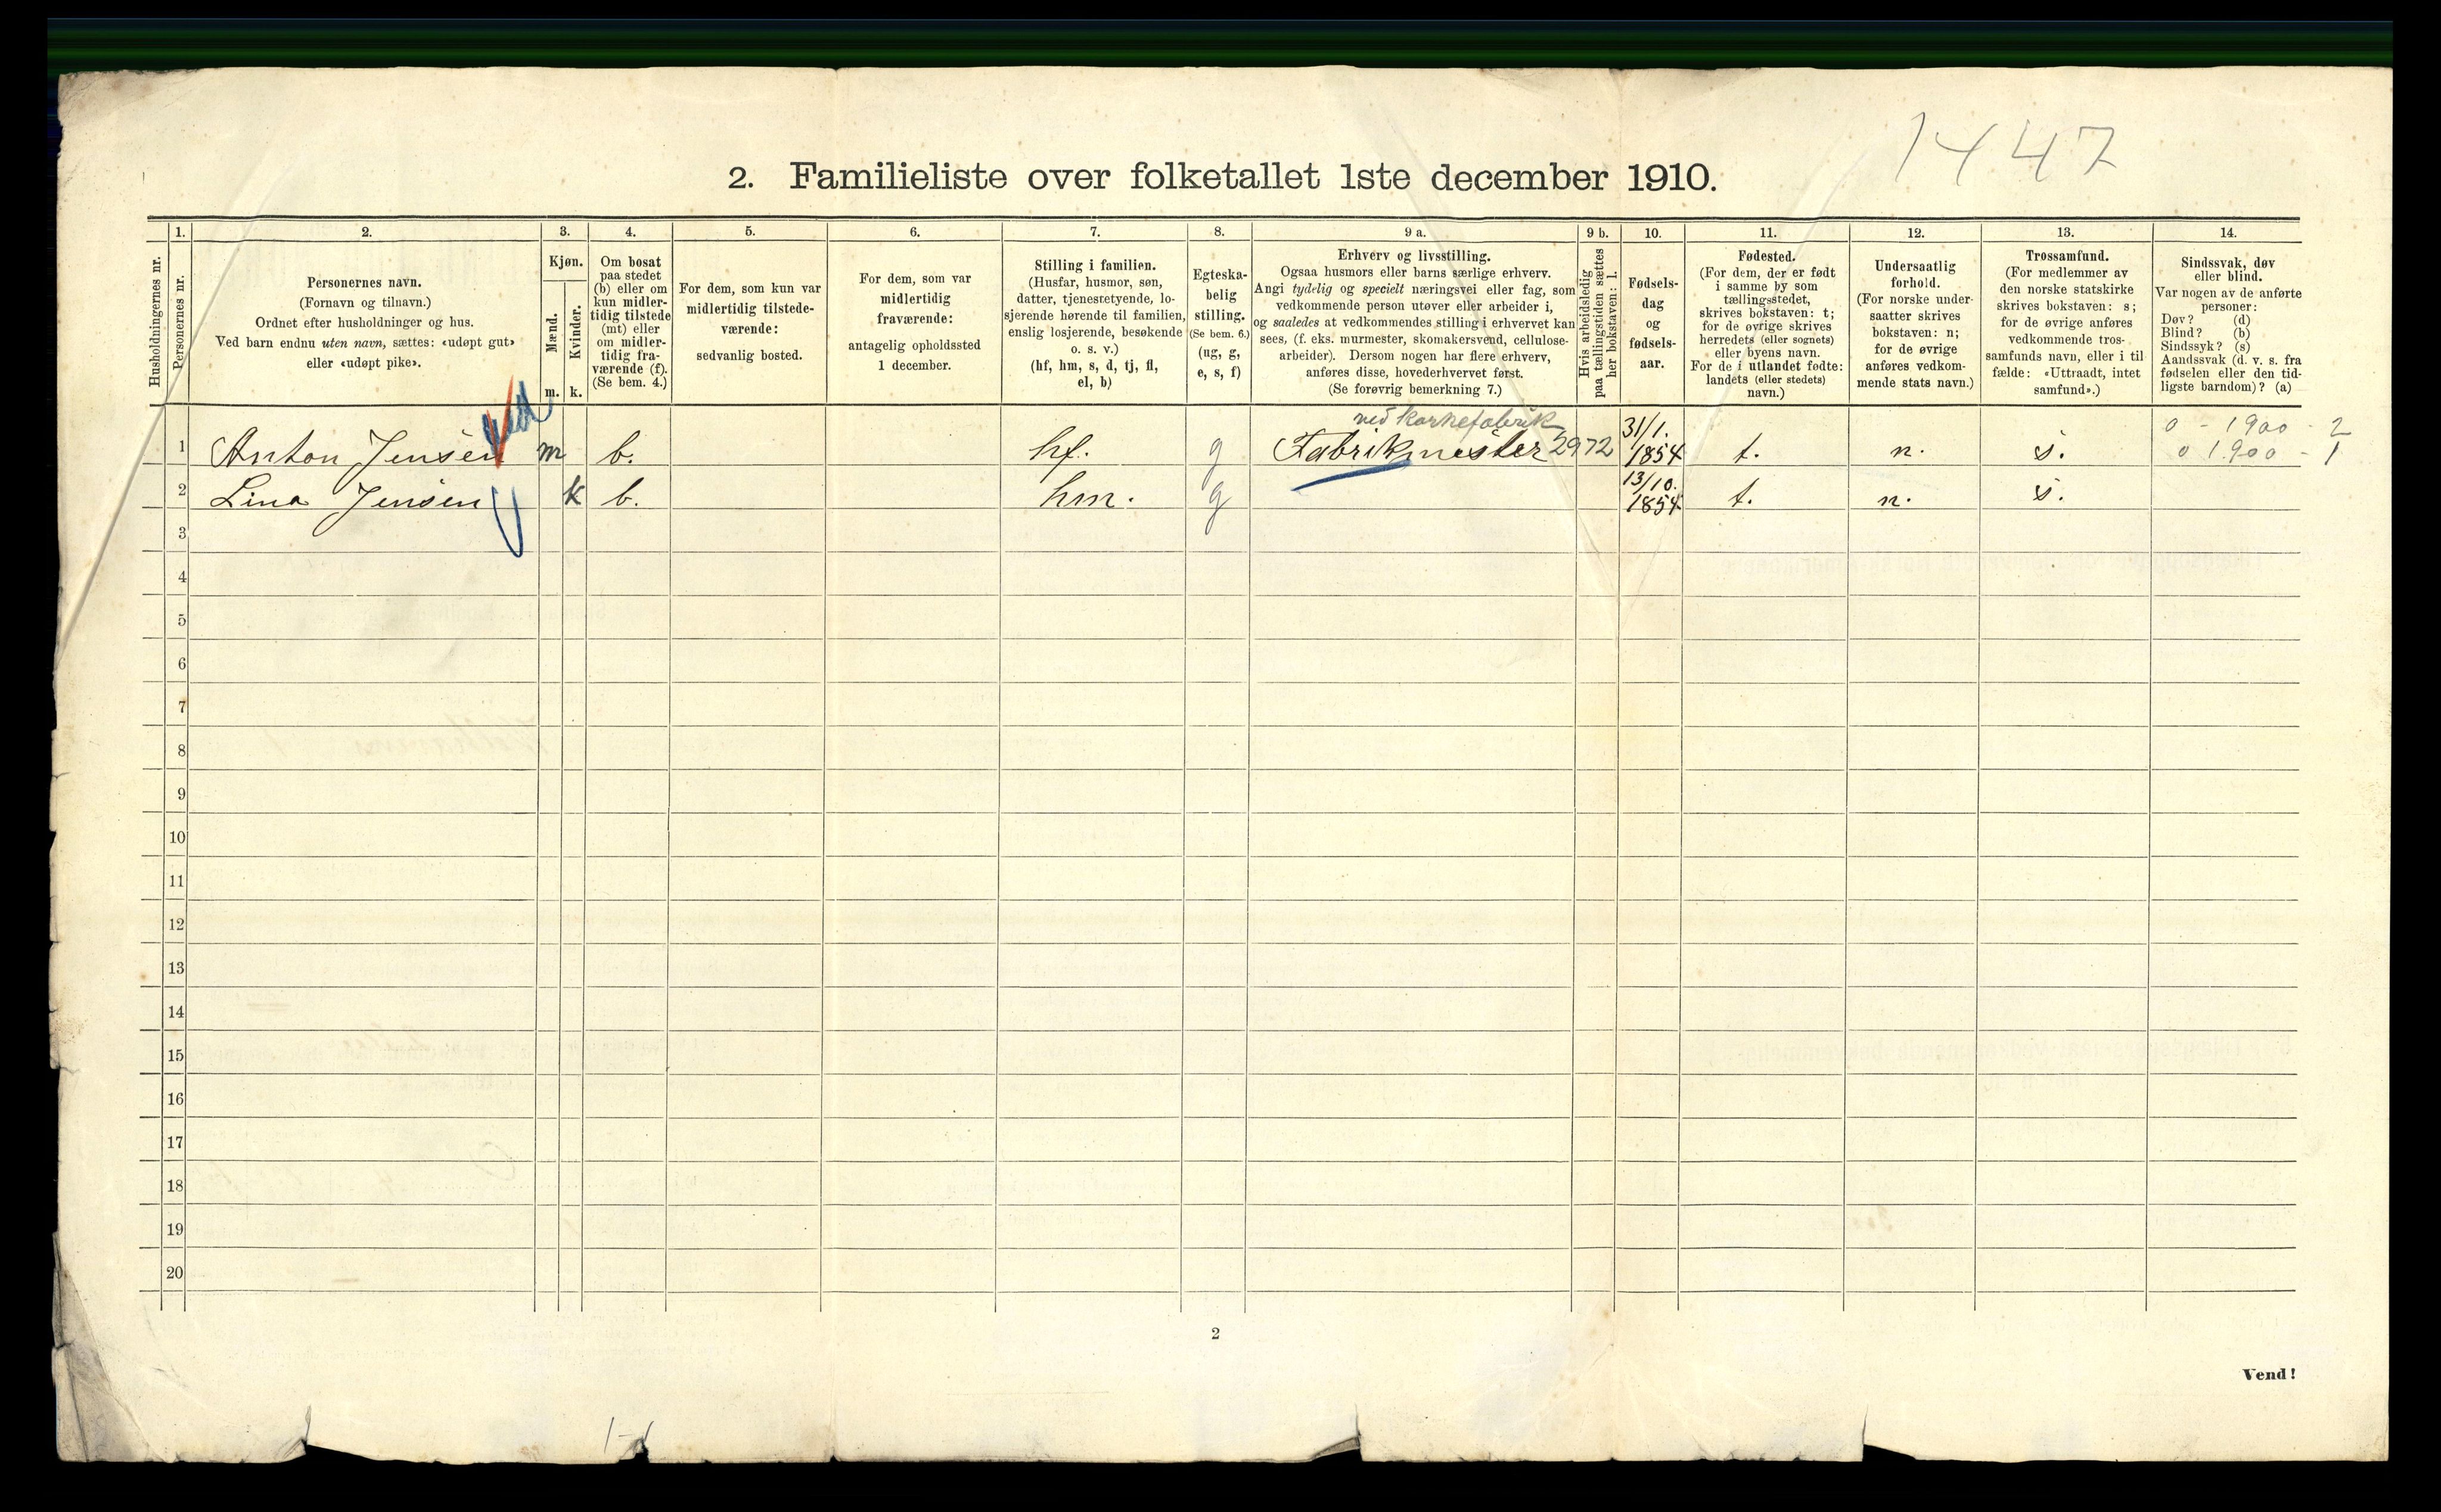 1447
2. Familieliste over folketallet 1ste december 1910.
Husholdningernes nr.
1.
Personernes nr.
2.
Personernes navn.
(Fornavn og tilnavn.)
Ordnet efter husholdninger og hus.
Ved barn endnu uten navn, sættes: «udøpt gut»
eller «udøpt pike».
3.
Kjøn.
Mænd.
Kvinder.
m. k.
4.
Om bosat
paa stedet
(b) eller om
kun midler-
tidig tilstede
(mt) eller
om midler-
tidig fra-
værende (f).
(Se bem. 4.)
5.
For dem, som kun var
midlertidig tilstede-
værende:
sedvanlig bosted.
6.
For dem, som var
midlertidig
fraværende:
antagelig opholdssted
1 december.
7.
Stilling i familien.
(Husfar, husmor, søn,
datter, tjenestetyende, lo-
sjerende hørende til familien,
enslig losjerende, besøkende
o. s. v.)
(hf, hm, s, d, tj, fl,
el, b)
8.
Egteska-
belig
stilling.
(Se bem. 6.)
(ug, g,
e, s, f)
9 a.
Erhverv og livsstilling.
Ogsaa husmors eller barns særlige erhverv.
Angi tydelig og specielt næringsvei eller fag, som
vedkommende person utøver eller arbeider i,
og saaledes at vedkommendes stilling i erhvervet kan
sees, (f. eks. murmester, skomakersvend, cellulose-
arbeider). Dersom nogen har flere erhverv,
anføres disse, hovederhvervet først.
(Se forøvrig bemerkning 7.)
9 b.
Hvis arbeidsledig
paa tællingstiden sættes
her bokstaven: l.
10.
Fødsels-
dag
og
fødsels-
aar.
11.
Fødested.
(For dem, der er født
i samme by som
tællingsstedet,
skrives bokstaven: t;
for de øvrige skrives
herredets (eller sognets)
eller byens navn.
For de i utlandet fødte:
landets (eller stedets)
navn.)
12.
Undersaatlig
forhold.
(For norske under-
saatter skrives
bokstaven: n;
for de øvrige
anføres vedkom-
mende stats navn.)
13.
Trossamfund.
(For medlemmer av
den norske statskirke
skrives bokstaven: s;
for de øvrige anføres
vedkommende tros-
samfunds navn, eller i til
fælde: «Uttraadt, intet
samfund».)
14.
Sindssvak, døv
eller blind.
Var nogen av de anførte
personer:
Døv? (d)
Blind? (b)
Sindssyk? (s)
Aandssvak (d. v. s. fra
fødselen eller den tid-
ligste barndom)? (a)
ved korkefabrik 31/1. 0 - 1900 - 2
1 Anton Jensen m b. hf. g Fabrikmester 2972 1854 t. n. s. 0 1900 - 1
13/10.
2 Lina Jensen k b. hm. g 1854 t. n. s.
3
4
5
6
7
8
9
10
11
12
13
14
15
16
17
18
19
20
2
Vend!
1-1